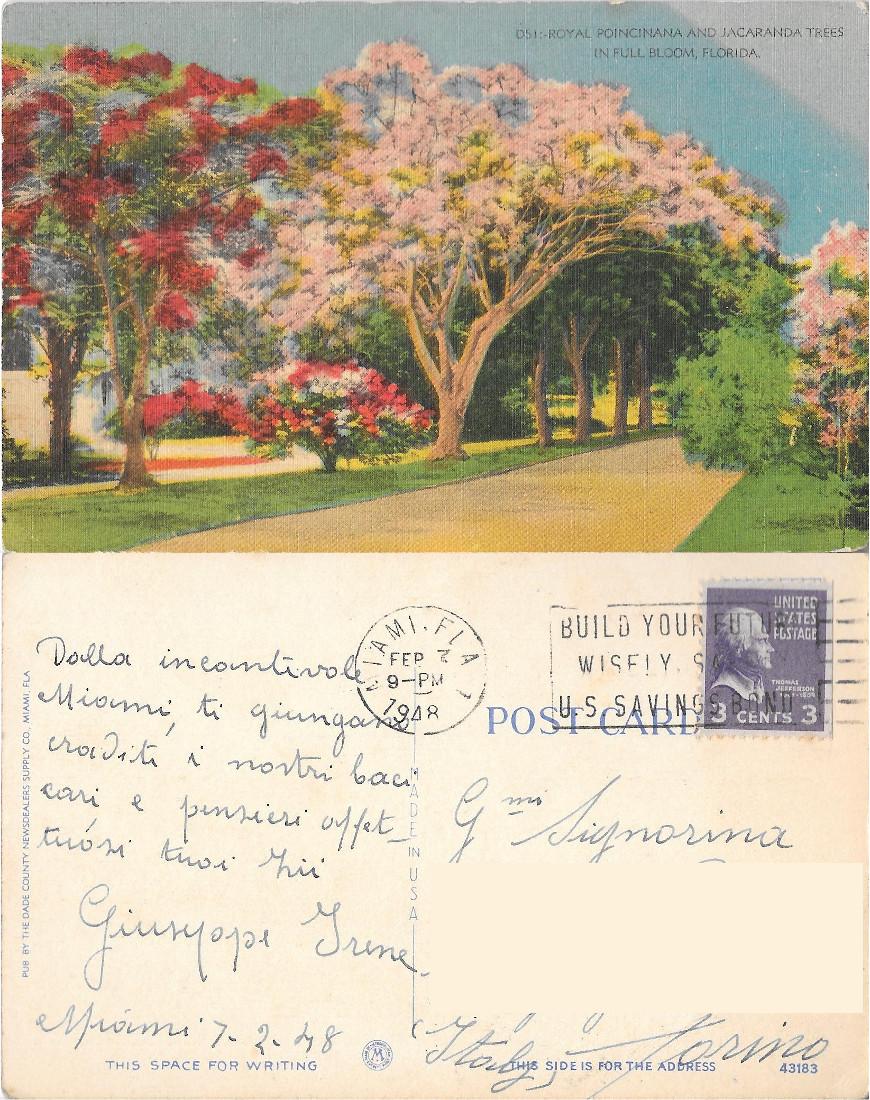 D51:-ROYAL POINCINANA AND JACARANDA TREES
IN FULL BLOOM, FLORIDA.
Dalla incantivole
Miami, ti giungano
graditi i nostri baci
cari e pensieri affet-
tuósi tuoi Zii
Giuseppe Irene.
Miami 7-2-48
THIS SPACE FOR WRITING
PUB. BY THE DADE COUNTY NEWSDEALERS SUPPLY CO., MIAMI, FLA
MADE IN USA
MIAMI, FLA
FEB 7
9-PM
1948
BUILD YOUR FUTURE
WISELY
U.S. SAVINGS BOND
UNITED
STATES
POSTAGE
THOMAS
JEFFERSON
3 CENTS 3
POST CARD
G.mi Signorina
Italy, Torino
THIS SIDE IS FOR THE ADDRESS
43183